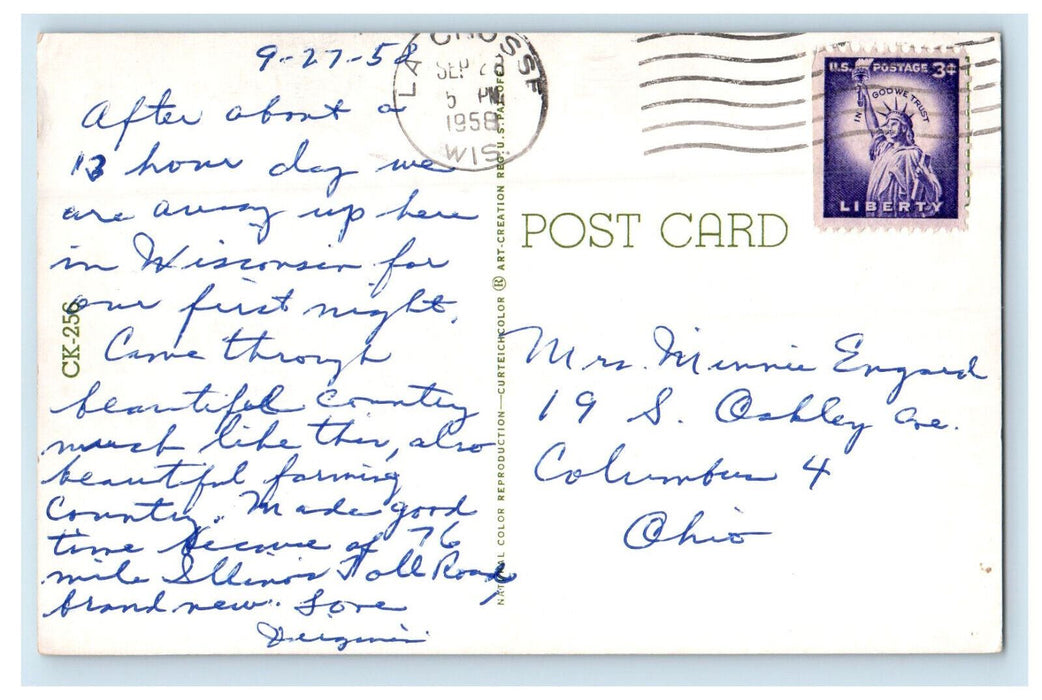 9-27-58
After about a
13 hour day we
are away up here
in Wisconsin for
our first night.
Came through
beautiful country
much like this, also
beautiful farming
country. Made good
time because of 76
mile Illinois Toll Road,
brand new. Love
Virginia
CK-256
LA CROSSE
SEP 28
5 PM
1958
WIS.
NATURAL COLOR REPRODUCTION—CURTEICHCOLOR ® ART-CREATION REG. U.S. PAT. OFF.
U.S. POSTAGE 3¢
IN GOD WE TRUST
LIBERTY
POST CARD
Mrs. Minnie Engard
19 S. Oakley Ave.
Columbus 4
Ohio